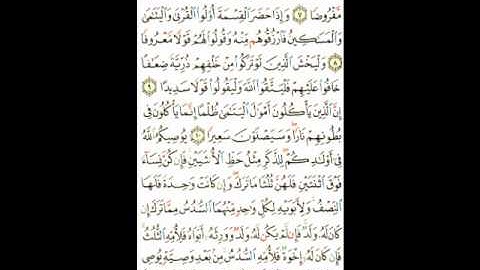 مَّفْرُوضًا ٧ وَإِذَا حَضَرَ الْقِسْمَةَ أُولُوا الْقُرْبَىٰ وَالْيَتَامَىٰ
وَالْمَسَاكِينُ فَارْزُقُوهُم مِّنْهُ وَقُولُوا لَهُمْ قَوْلًا مَّعْرُوفًا
٨ وَلْيَخْشَ الَّذِينَ لَوْ تَرَكُوا مِنْ خَلْفِهِمْ ذُرِّيَّةً ضِعَافًا
خَافُوا عَلَيْهِمْ فَلْيَتَّقُوا اللَّهَ وَلْيَقُولُوا قَوْلًا سَدِيدًا ٩
إِنَّ الَّذِينَ يَأْكُلُونَ أَمْوَالَ الْيَتَامَىٰ ظُلْمًا إِنَّمَا يَأْكُلُونَ فِي
بُطُونِهِمْ نَارًا وَسَيَصْلَوْنَ سَعِيرًا ١٠ يُوصِيكُمُ اللَّهُ
فِي أَوْلَادِكُمْ لِلذَّكَرِ مِثْلُ حَظِّ الْأُنثَيَيْنِ فَإِن كُنَّ نِسَاءً
فَوْقَ اثْنَتَيْنِ فَلَهُنَّ ثُلُثَا مَا تَرَكَ وَإِن كَانَتْ وَاحِدَةً فَلَهَا
النِّصْفُ وَلِأَبَوَيْهِ لِكُلِّ وَاحِدٍ مِّنْهُمَا السُّدُسُ مِمَّا تَرَكَ إِن
كَانَ لَهُ وَلَدٌ فَإِن لَّمْ يَكُن لَّهُ وَلَدٌ وَوَرِثَهُ أَبَوَاهُ فَلِأُمِّهِ الثُّلُثُ
فَإِن كَانَ لَهُ إِخْوَةٌ فَلِأُمِّهِ السُّدُسُ مِن بَعْدِ وَصِيَّةٍ يُوصِي